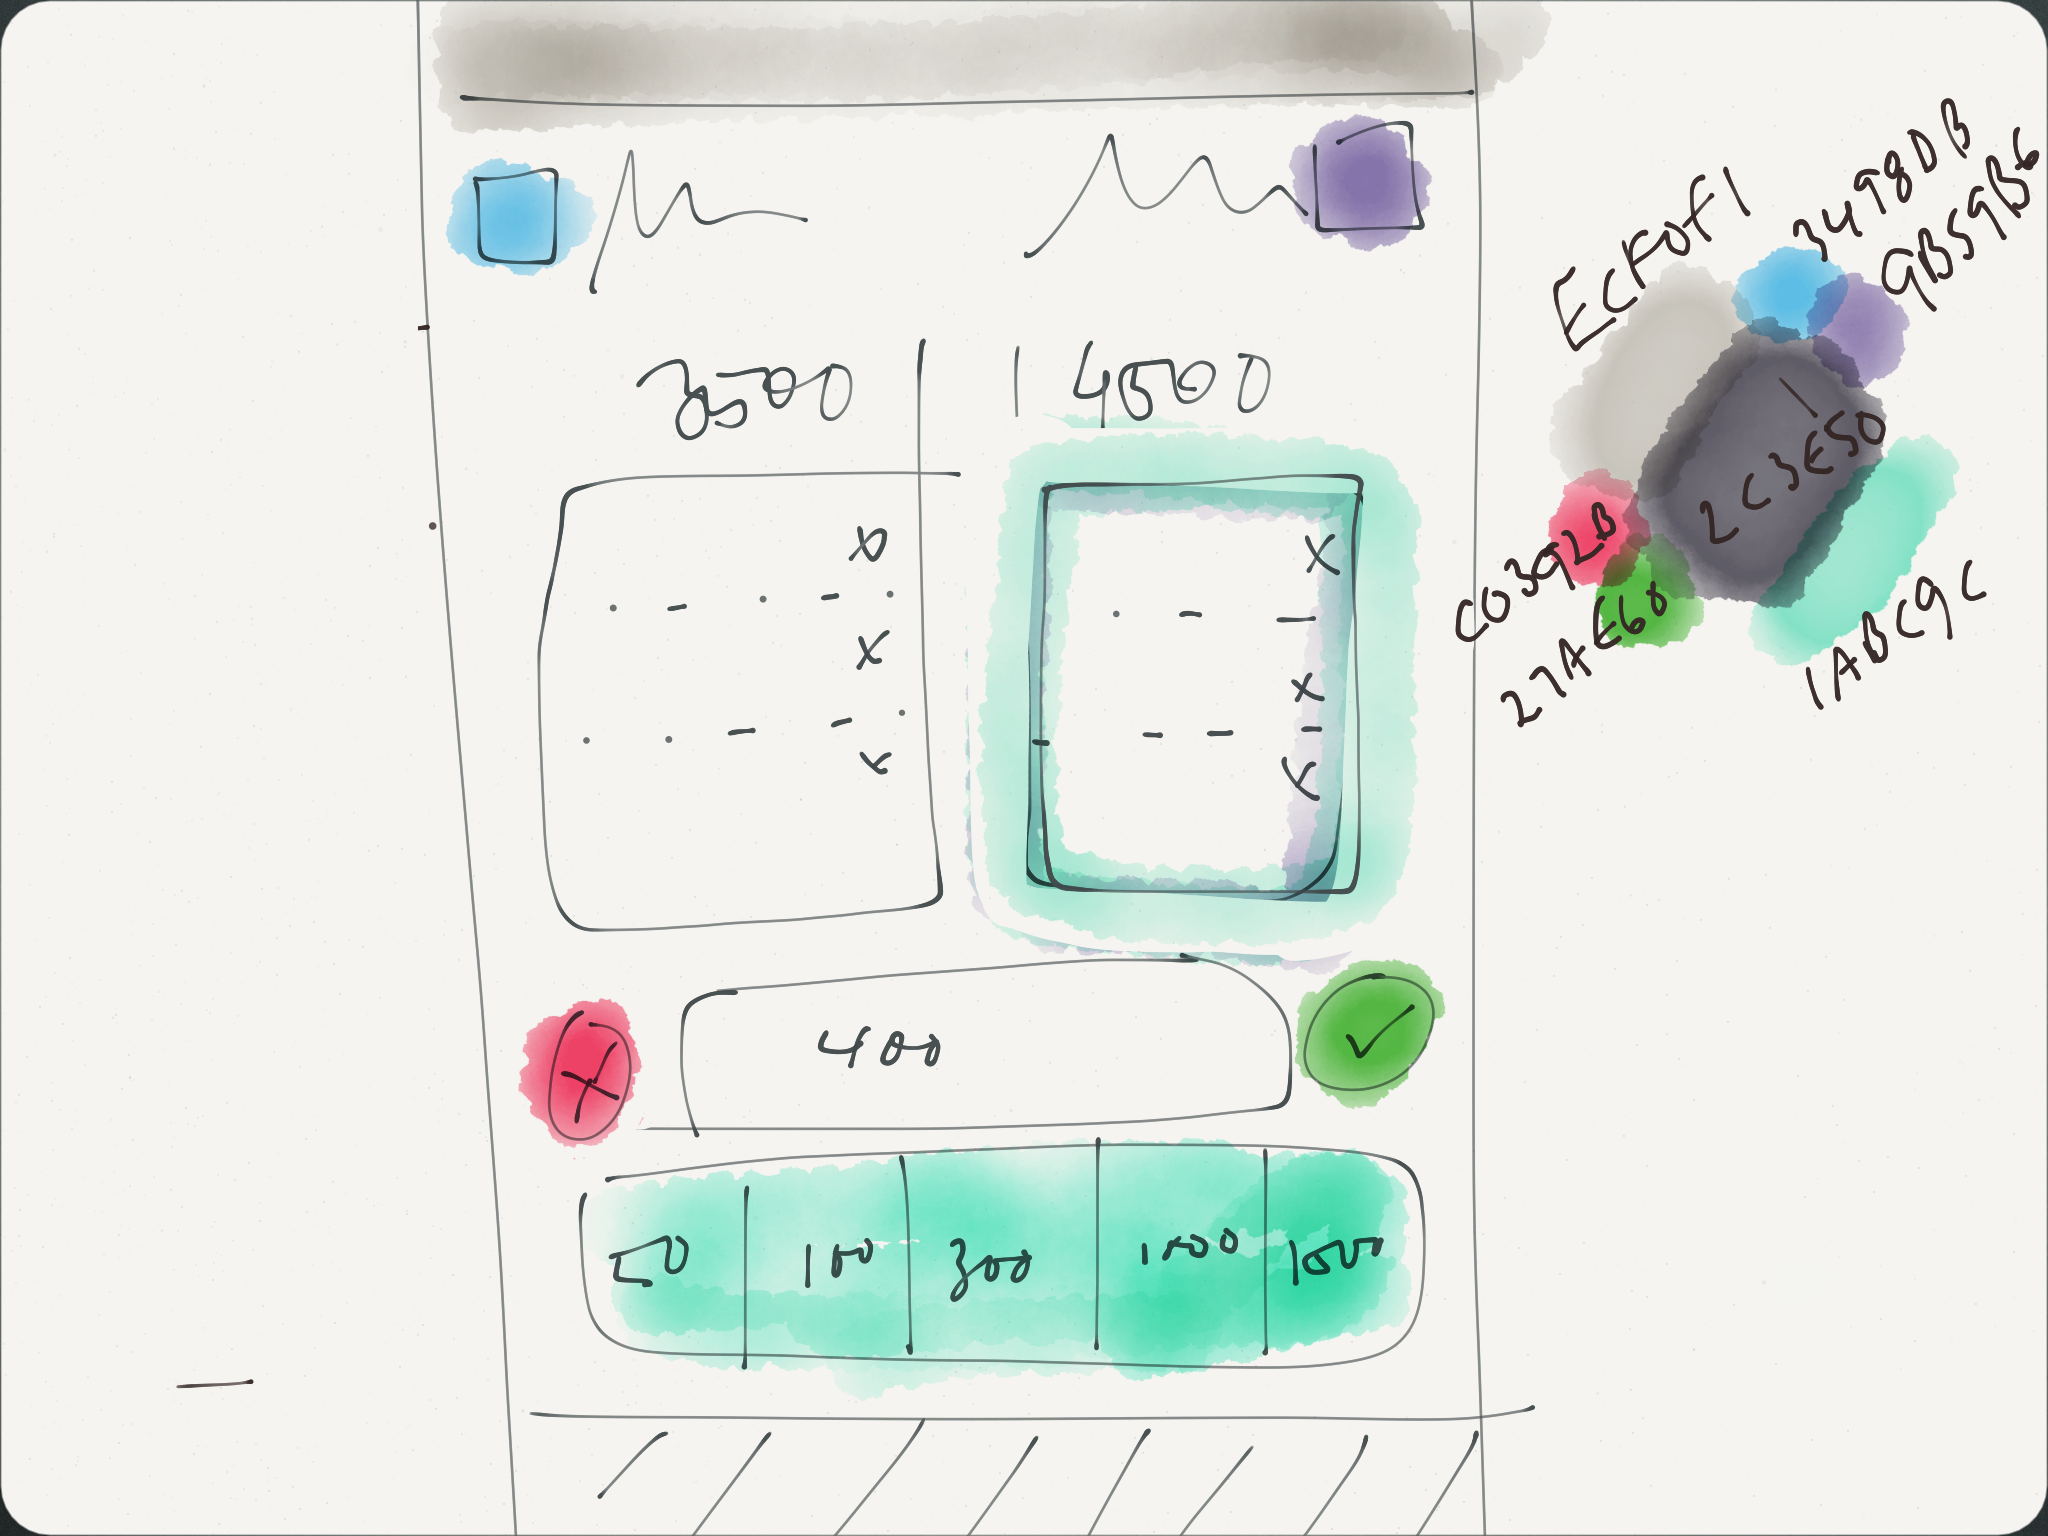 3500
4500
X
X
X
X
X
X
400
50
100
300
1000
1500
ECF0F1
3498DB
9B59B6
2C3E50
C0392B
27AE60
1ABC9C